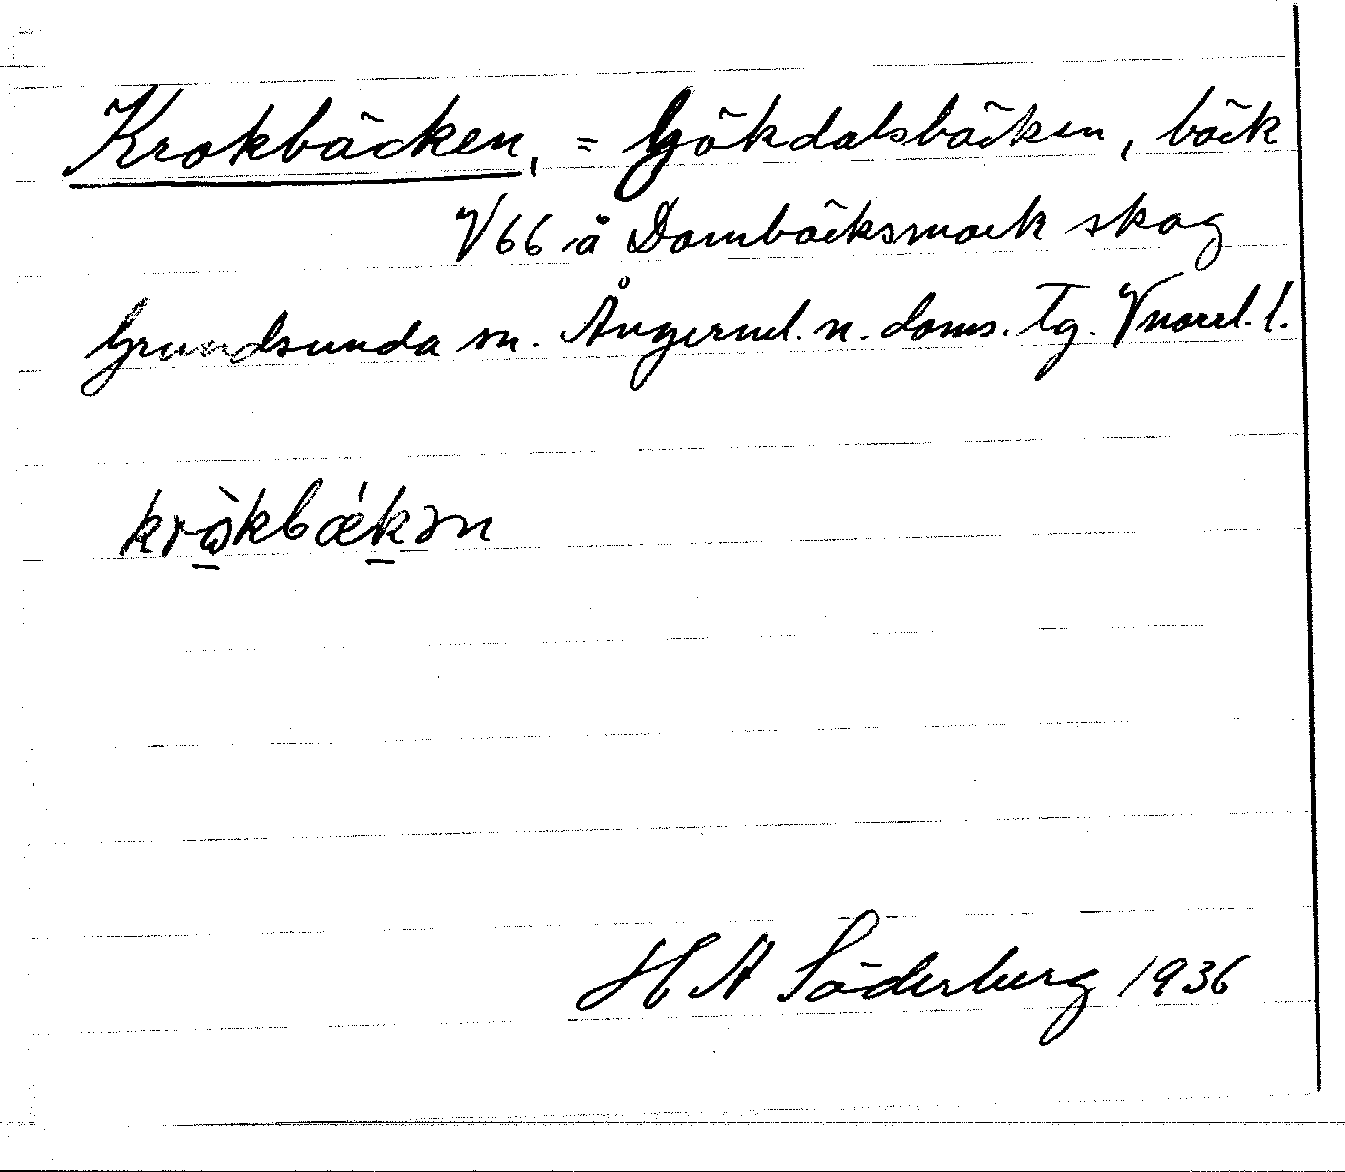 Krokbäcken, = Gökdalsbäcken, bäck
V 66 å Dombäcksmark skog
Grundsunda sn. Ångerml. n. doms. Tg. Vnorrl. l.
krὼkbǽkən
H A Söderberg 1936